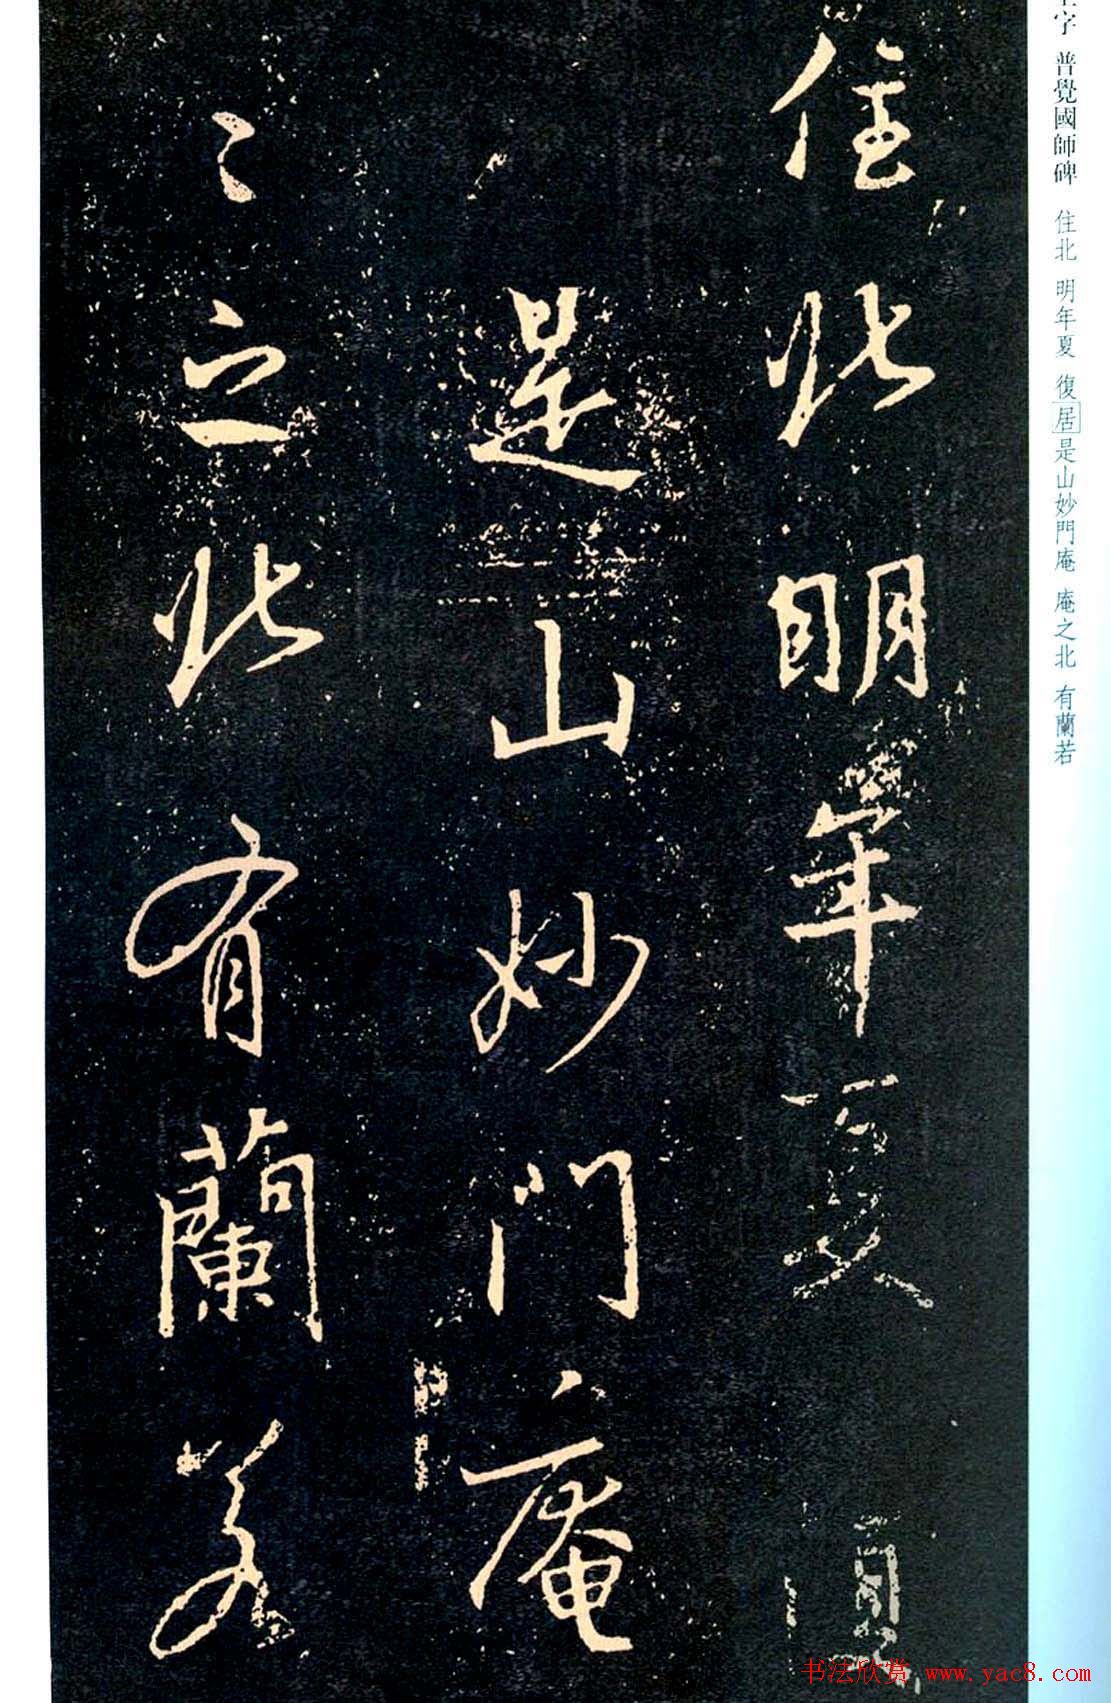 字 普覺國師碑 住北 明年夏 復居是山妙門庵 庵之北 有蘭若
住北明年夏復
是山妙門庵
々之北有蘭若
书法欣赏 www.yac8.com